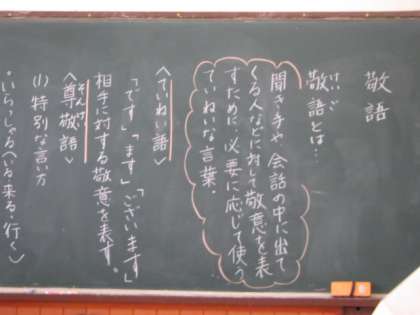 敬語
けいご
敬語とは…
聞き手や会話の中に出て
くる人などに対して敬意を表
すために、必要に応じて使う
ていねいな言葉。
〈ていねい語〉
「です」「ます」「ございます」
相手に対する敬意を表す。
そんけい
〈尊敬語〉
(1)特別な言い方
・いらっしゃる(いる・来る・行く)